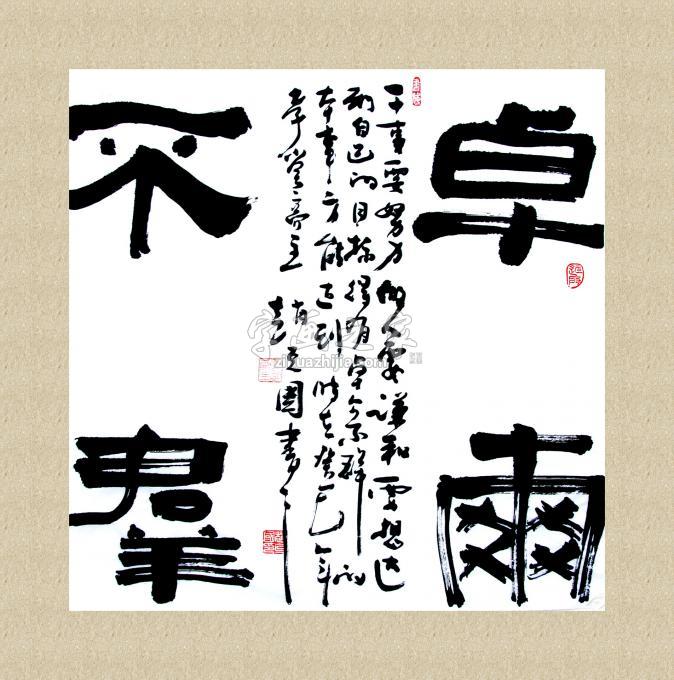 卓爾
干事要努力做人要谦和要想达
到自己的目标得有卓尔不群的
本事方能达到时在癸巳年
斋主
国书
不羣
字画之家
zihuazhijia.com